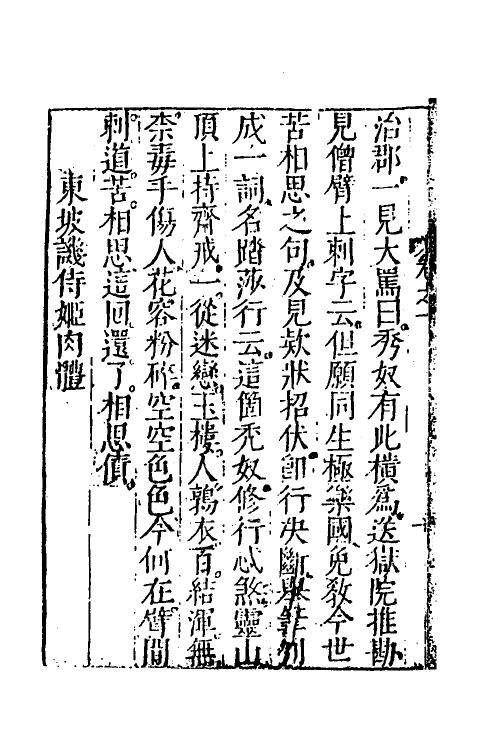 治郡一見大罵曰秃奴有此橫為送獄院推勘
見僧臂上刺字云但願同生極樂國免教今世
苦相思之句及見欵狀招伏即行決斷舉筆判
成一詞名踏莎行云這箇秃奴修行忒煞靈山
頂上持齋戒一從迷戀玉樓人鶉衣百結渾無
柰毒手傷人花容粉碎空空色色今何在臂間
刺道苦相思這回還了相思債
東坡譏侍姬肉體